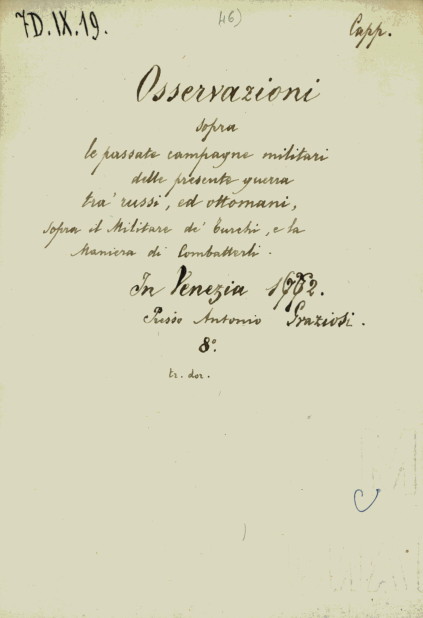 7D.IX.19.
46)
Capp.
Osservazioni
sopra
le passate campagne militari
delle presente guerra
tra' russi, ed ottomani,
sopra il Militare de' Turchi, e la
Maniera di Combatterli.
In Venezia
Presso Antonio Graziosi.
8°.
tr. dor.